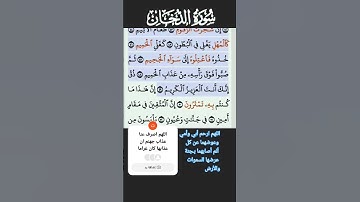 سورة الدخان
إِنَّ شَجَرَتَ الزَّقُّومِ طَعَامُ الْأَثِيمِ
كَالْمُهْلِ يَغْلِي فِي الْبُطُونِ كَغَلْيِ الْحَمِيمِ
خُذُوهُ فَاعْتِلُوهُ إِلَىٰ سَوَاءِ الْجَحِيمِ ثُمَّ
صُبُّوا فَوْقَ رَأْسِهِ مِنْ عَذَابِ الْحَمِيمِ ذُقْ
إِنَّكَ أَنتَ الْعَزِيزُ الْكَرِيمُ إِنَّ هَٰذَا مَا
كُنتُم بِهِ تَمْتَرُونَ إِنَّ الْمُتَّقِينَ فِي مَقَامٍ
أَمِينٍ فِي جَنَّاتٍ وَعُيُونٍ يَلْبَسُونَ مِن
اللهم اصرف عنا
عذاب جهنم ان
عذابها كان غراما
اللهم ارحم أبي وأمي
وعوضهما عن كل
ألم أصابهما بجنة
عرضها السموات
والأرض